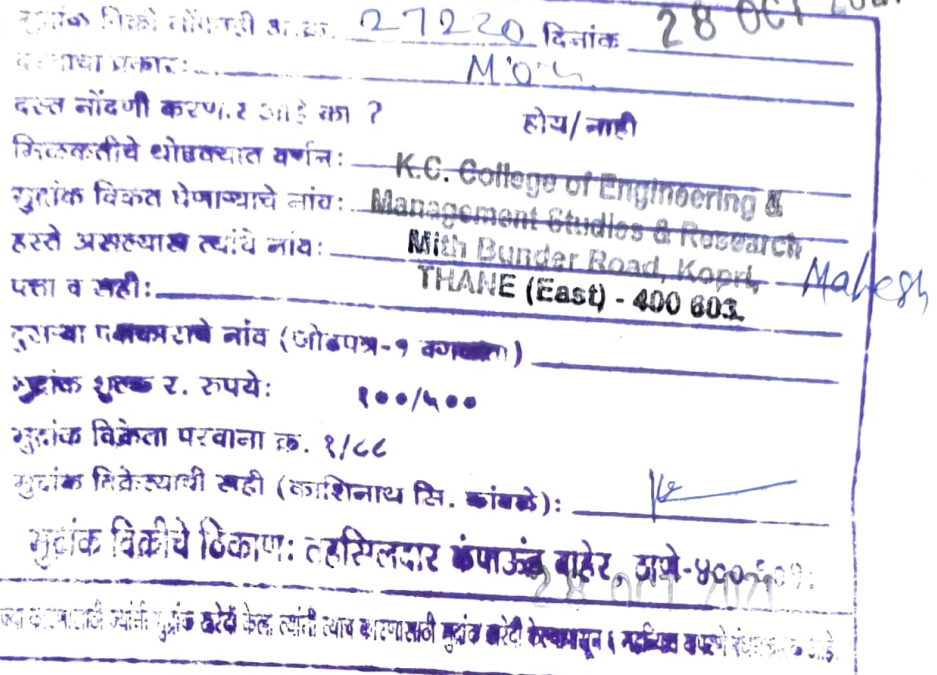 मुद्रांक विक्री नोंदवही अ.क्र. 27220 दिनांक 28 OCT
दस्ताचा प्रकार: M.O.U
दस्त नोंदणी करणार आहे का ? होय/नाही
मिळकतीचे थोडक्यात वर्णन:
K.C. College of Engineering &
मुद्रांक विकत घेणाऱ्याचे नांव: Management Studies & Research
हस्ते असल्यास त्यांचे नांव: Mith Bunder Road, Kopri, Mahesh
पत्ता व सही: THANE (East) - 400 603.
दुसऱ्या पक्षकाराचे नांव (जोडपत्र-१
मुद्रांक शुल्क र. रुपये: १००/५००
मुद्रांक विक्रेता परवाना क्र. १/८८
मुद्रांक विक्रेत्याची सही (काशिनाथ सि. कांबळे):
मुद्रांक विक्रीचे ठिकाण: तहसिलदार कंपाऊंड बाहेर, ठाणे-४००६०१.
28 OCT 2021
ज्या कारणासाठी ज्यांनी मुद्रांक खरेदी केला त्यांनी त्याच कारणासाठी मुद्रांक खरेदी केल्यापासून ६ महिन्यात वापरणे बंधनकारक आहे.